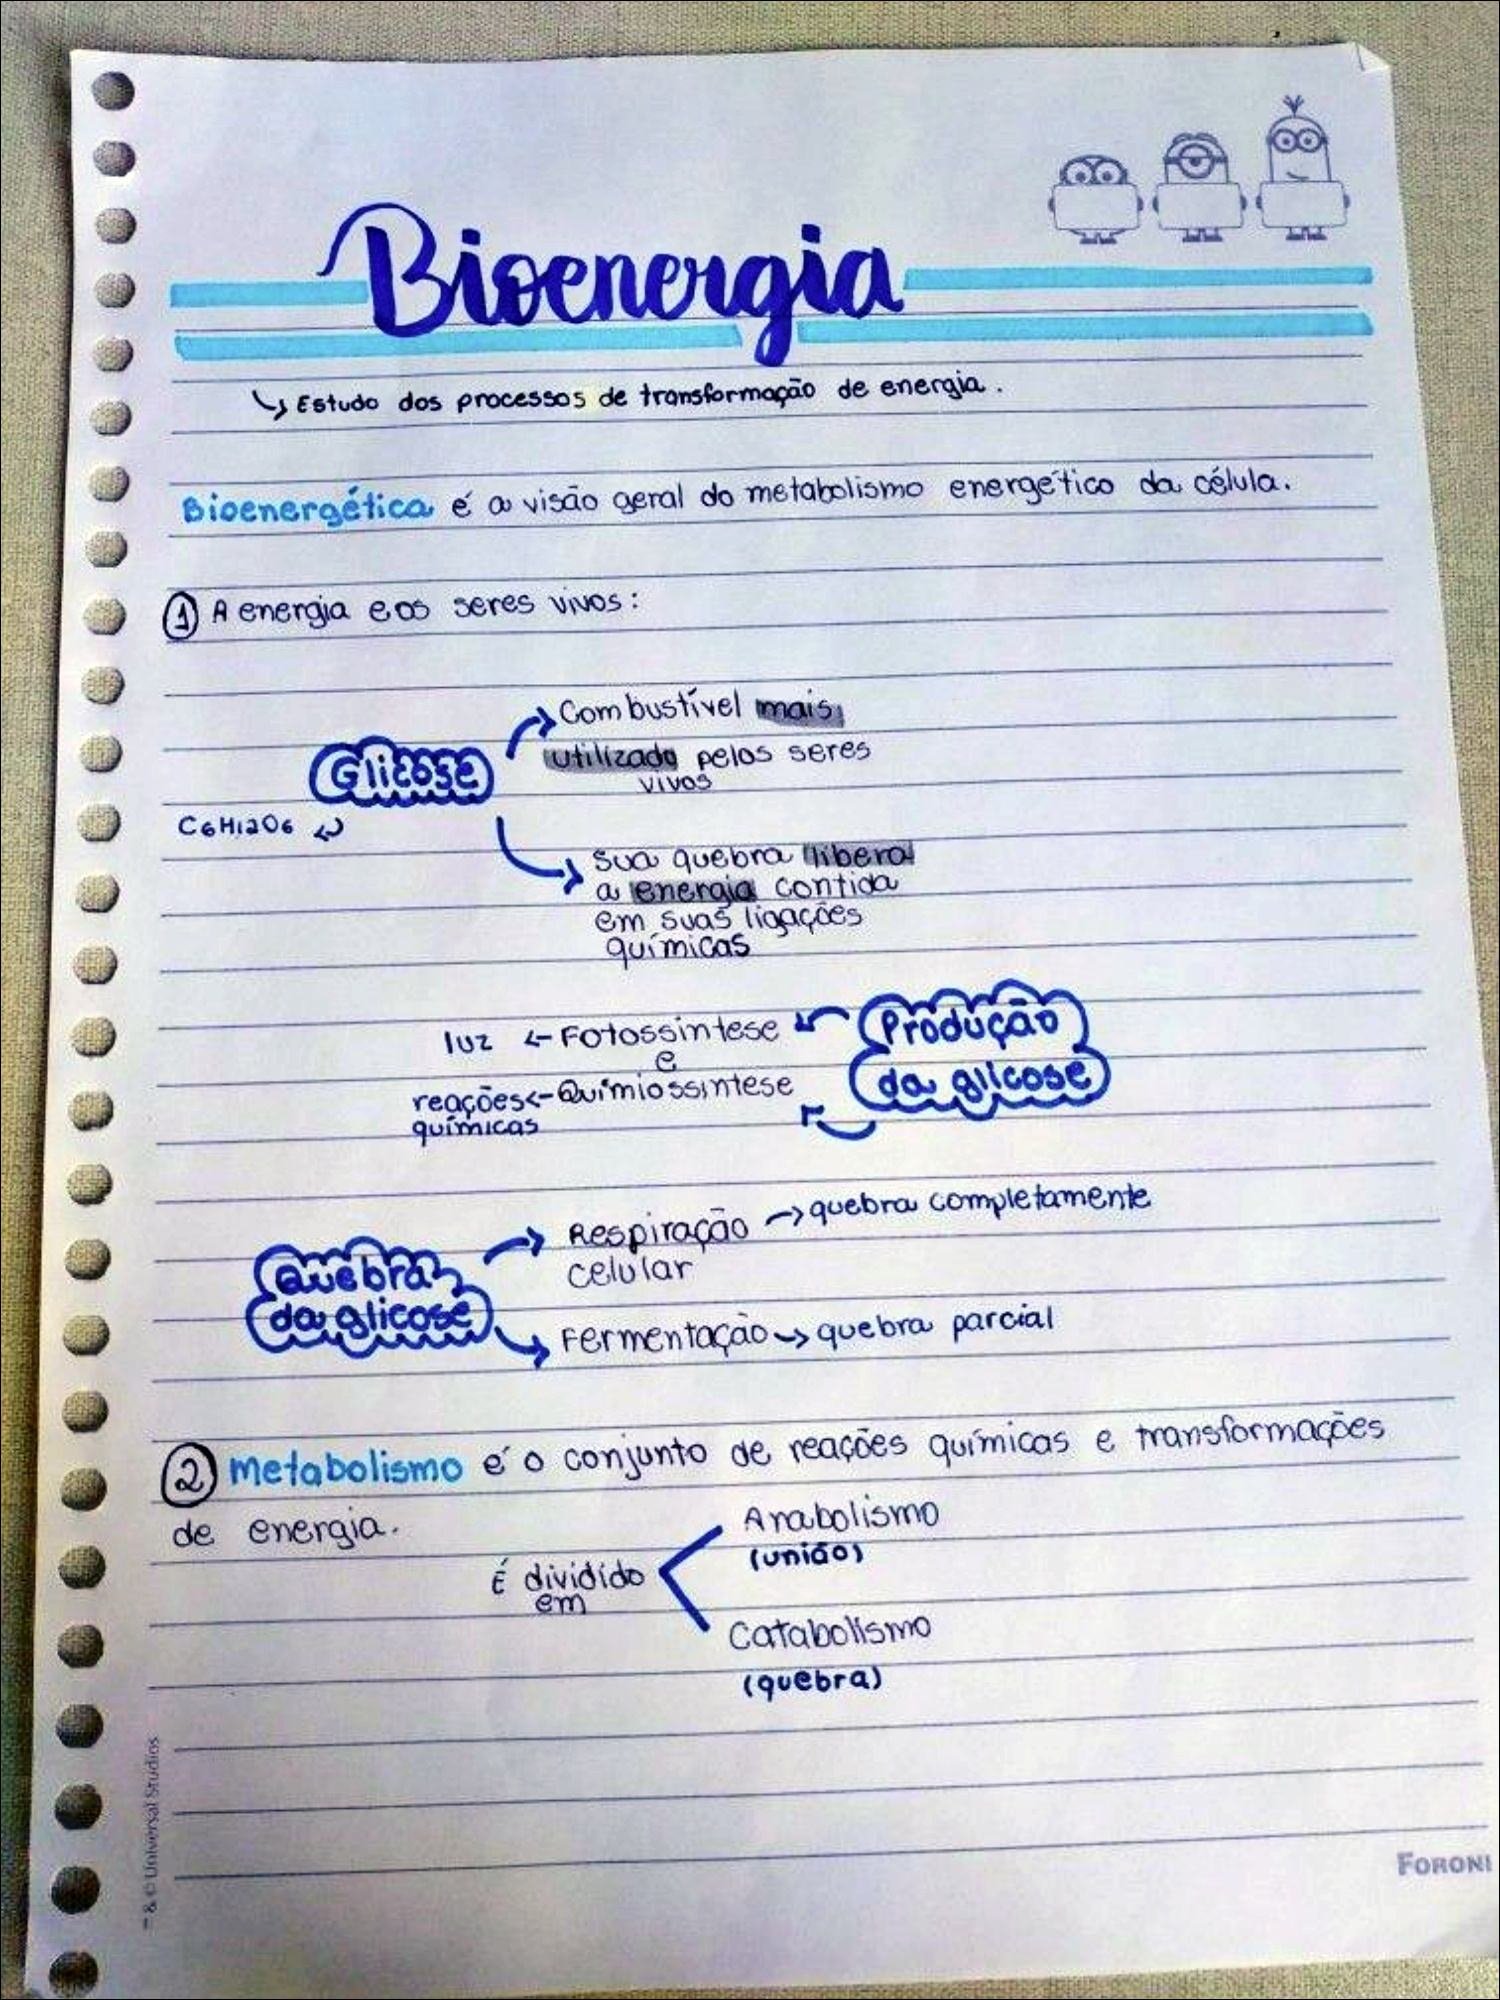 Bioenergia
↳ Estudo dos processos de transformação de energia.
Bioenergética é a visão geral do metabolismo energético da célula.
1 A energia e os seres vivos:
Combustível mais
utilizado pelos seres
vivos
Glicose
C6H12O6
sua quebra libera
a energia contida
em suas ligações
químicas
Produção
da glicose
luz ← Fotossíntese
e
reações ← Quimiossíntese
químicas
Quebra
da glicose
Respiração → quebra completamente
celular
Fermentação → quebra parcial
2 Metabolismo é o conjunto de reações químicas e transformações
de energia.
É dividido
em
Anabolismo
(união)
Catabolismo
(quebra)
™ & © Universal Studios
FORONI